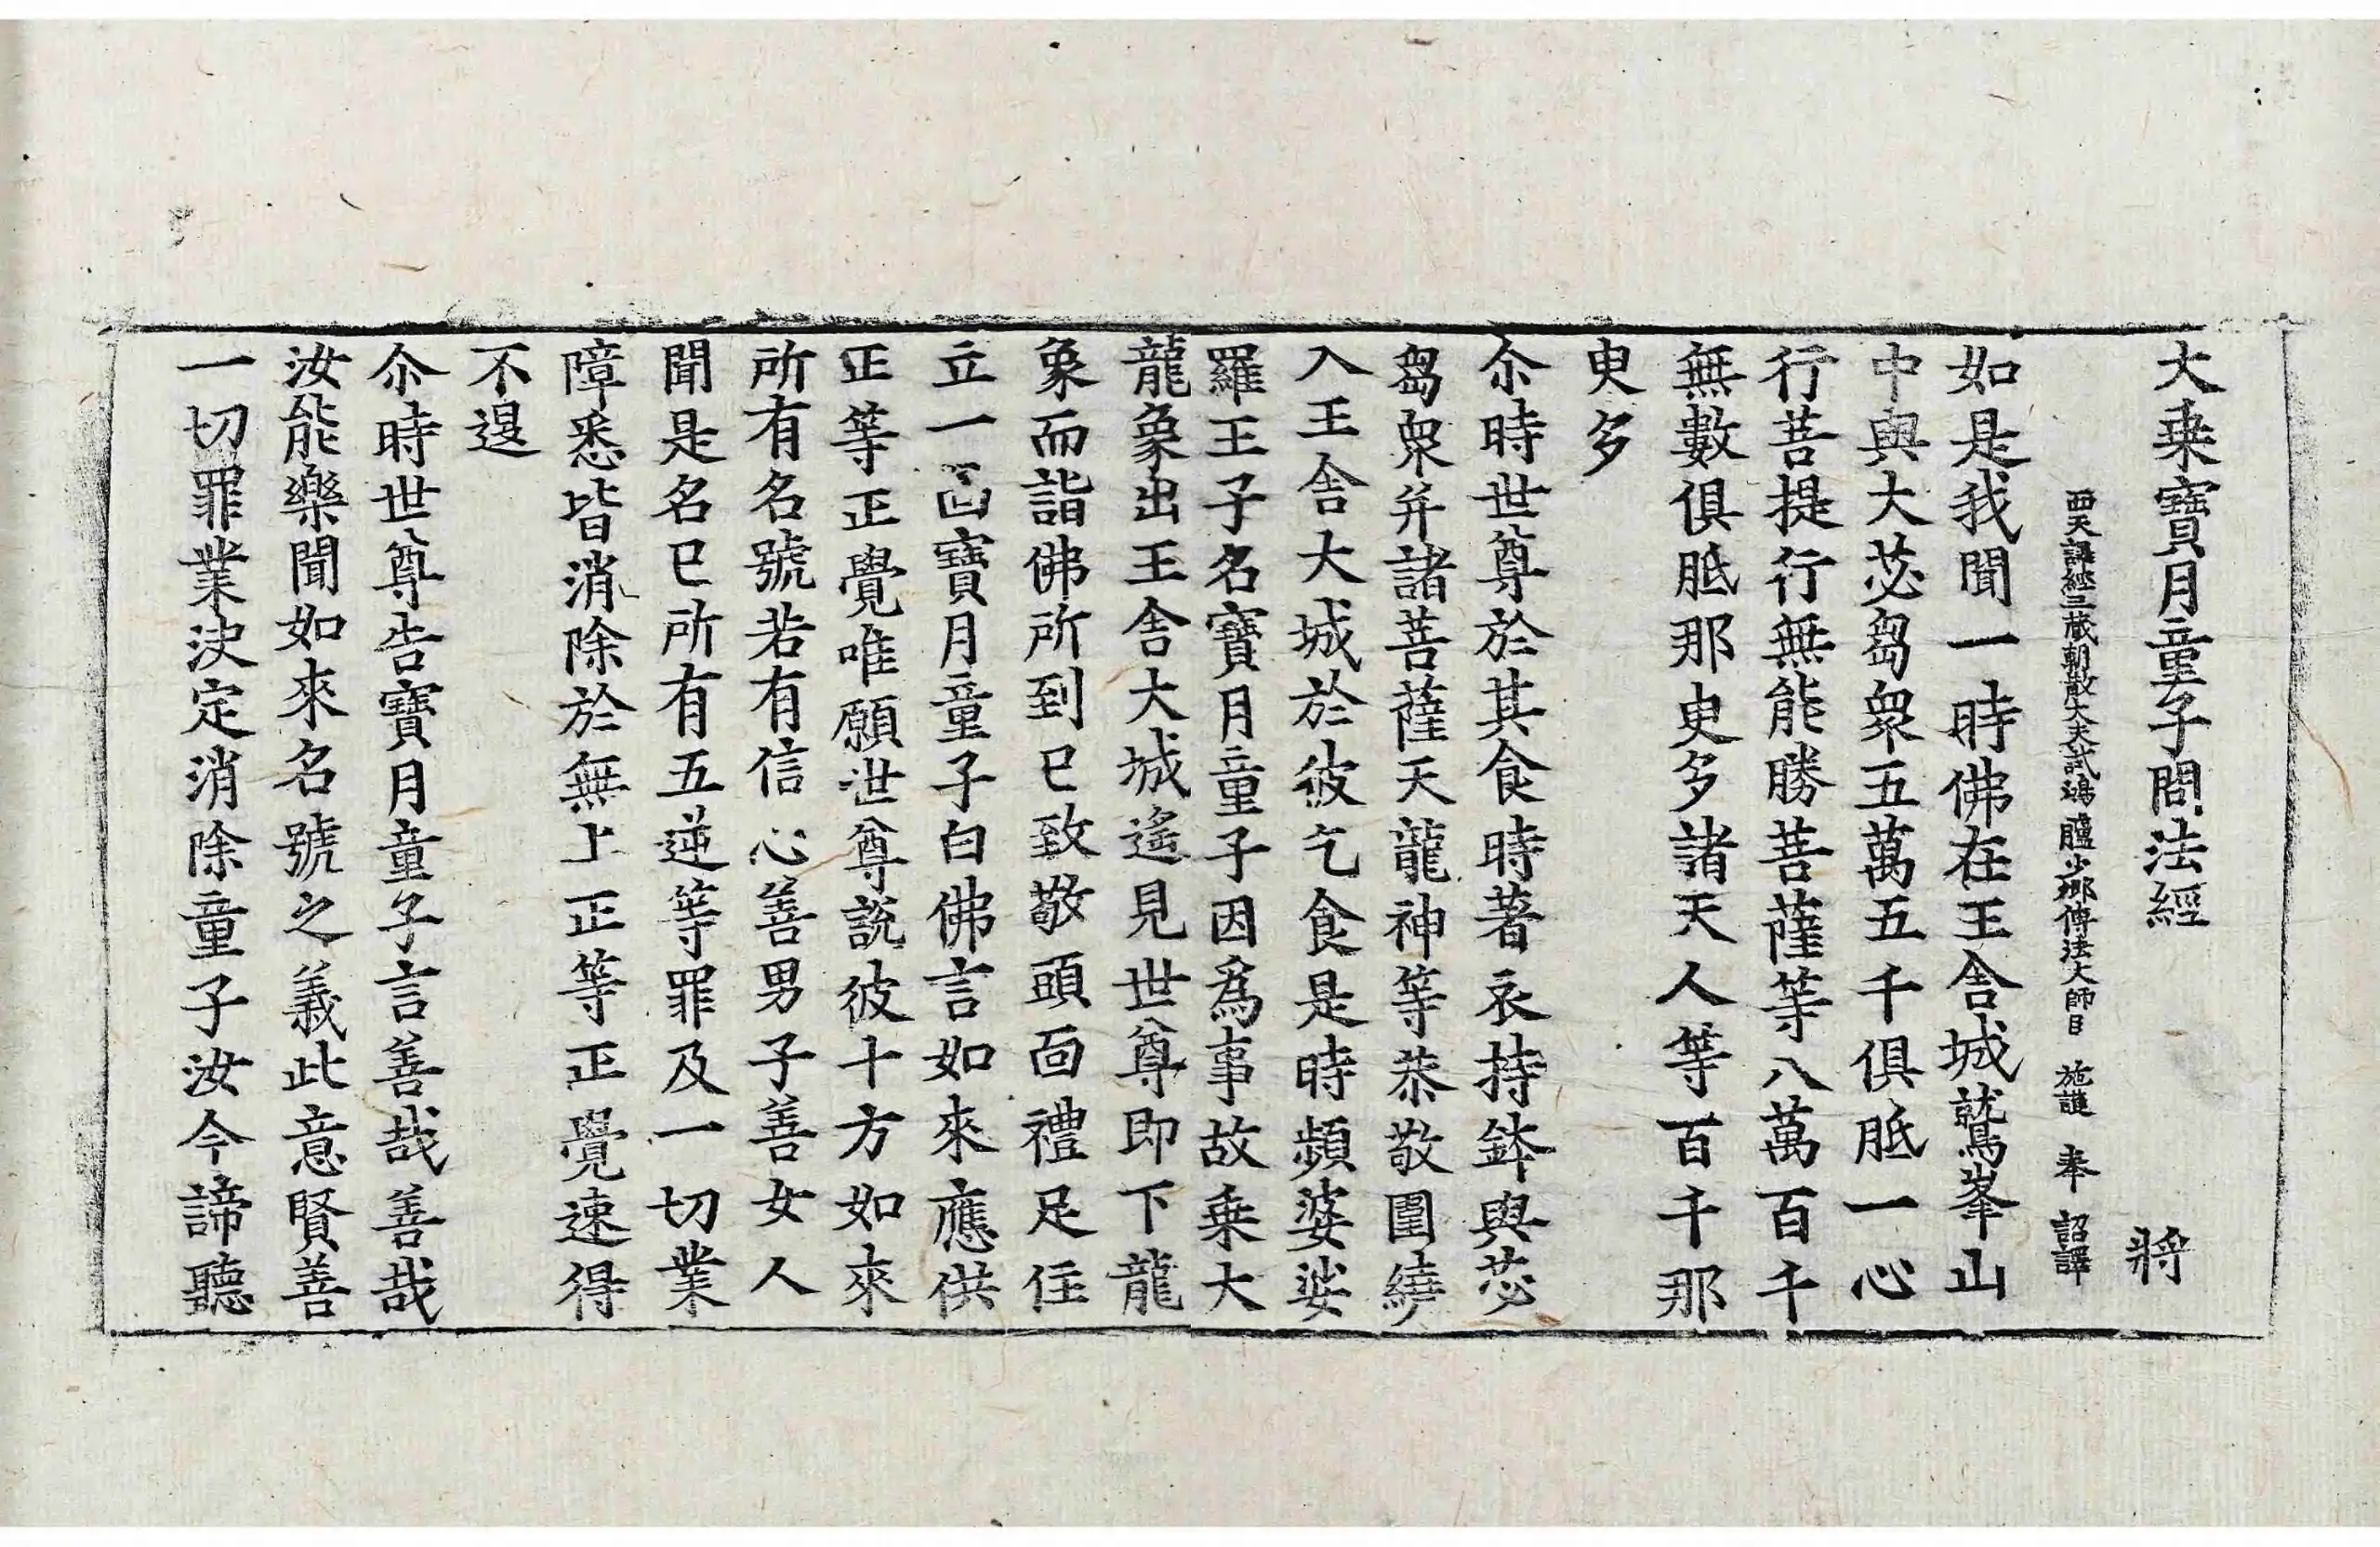 大乗寶月童子問法經 將
西天譯經三藏朝散大夫試鴻臚少卿傳法大師臣 施護 奉 詔譯
如是我聞一時佛在王舍城鷲峯山
中與大苾芻衆五萬五千俱胝一心
行菩提行無能勝菩薩等八萬百千
無數俱胝那庾多諸天人等百千那
庾多
尒時世尊於其食時著衣持鉢與苾
芻衆并諸菩薩天龍神等恭敬圍繞
入王舍大城於彼乞食是時頻婆娑
羅王子名寶月童子因爲事故乗大
龍象出王舍大城遙見世尊即下龍
象而詣佛所到已致敬頭面禮足住
立一面寶月童子白佛言如來應供
正等正覺唯願世尊說彼十方如來
所有名號若有信心善男子善女人
聞是名已所有五逆等罪及一切業
障悉皆消除於無上正等正覺速得
不退
尒時世尊告寶月童子言善哉善哉
汝能樂聞如來名號之義此意賢善
一切罪業決定消除童子汝今諦聽